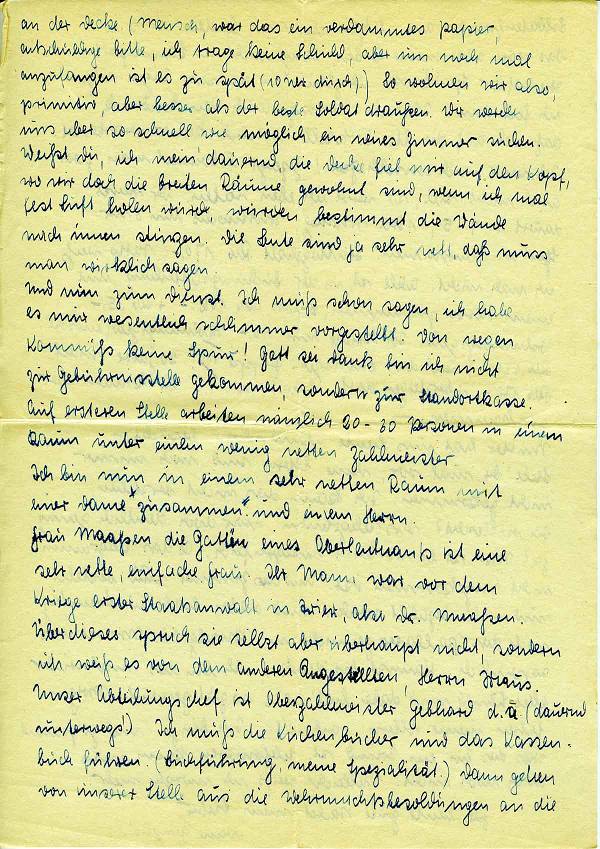 an der Decke (Mensch, war das ein verdammtes Papier,
entschuldige bitte, ich trage keine Schuld, aber um noch mal
anzufangen ist es zu spät (10 Uhr durch).) So wohnen wir also,
primitiv, aber besser als der beste Soldat draußen. Wir werden
uns aber so schnell wie möglich ein neues Zimmer suchen.
Weißt du, ich mein dauernd, die Decke fiel mir auf den Kopf,
wo wir doch die breiten Räume gewohnt sind, wenn ich mal
fest Luft holen würde würden bestimmt die Wände
nach innen stürzen. Die Leute sind ja sehr nett, daß muss
man wirklich sagen
Und nun zum Dienst. Ich muß schon sagen, ich habe
es mir wesentlich schlimmer vorgestellt. Von wegen
Kommiß keine Spur! Gott sei Dank bin ich nicht
zur Gebührnisstelle gekommen, sondern zur Standortkasse.
Auf ersteren Stelle arbeiten nämlich 20-30 Personen in einem
Raum unter einem wenig netten Zahlmeister
Ich bin nun in einem sehr netten Raum mit
einer Dame "zusammen" und einem Herrn.
Frau Maaßen die Gattin eines Oberleutnants ist eine
sehr nette, einfache Frau. Ihr Mann war vor dem
Kriege erster Staatsanwalt in Trier, also Dr. Meaßen.
Über dieses spruch sie selbst aber überhaupt nicht, sondern
ich weiß es von dem anderen Angestellten, Herrn
Unser Abteilungschef ist Oberzahlmeister Gebhard d.ä (dauernd
unterwegs!) Ich muß die Küchenbücher und das Kassen-
buch führen. (Buchführung, meine Spezialität.) Dann gehen
von unserer Stelle aus die Wehrmachtsbesoldungen an die